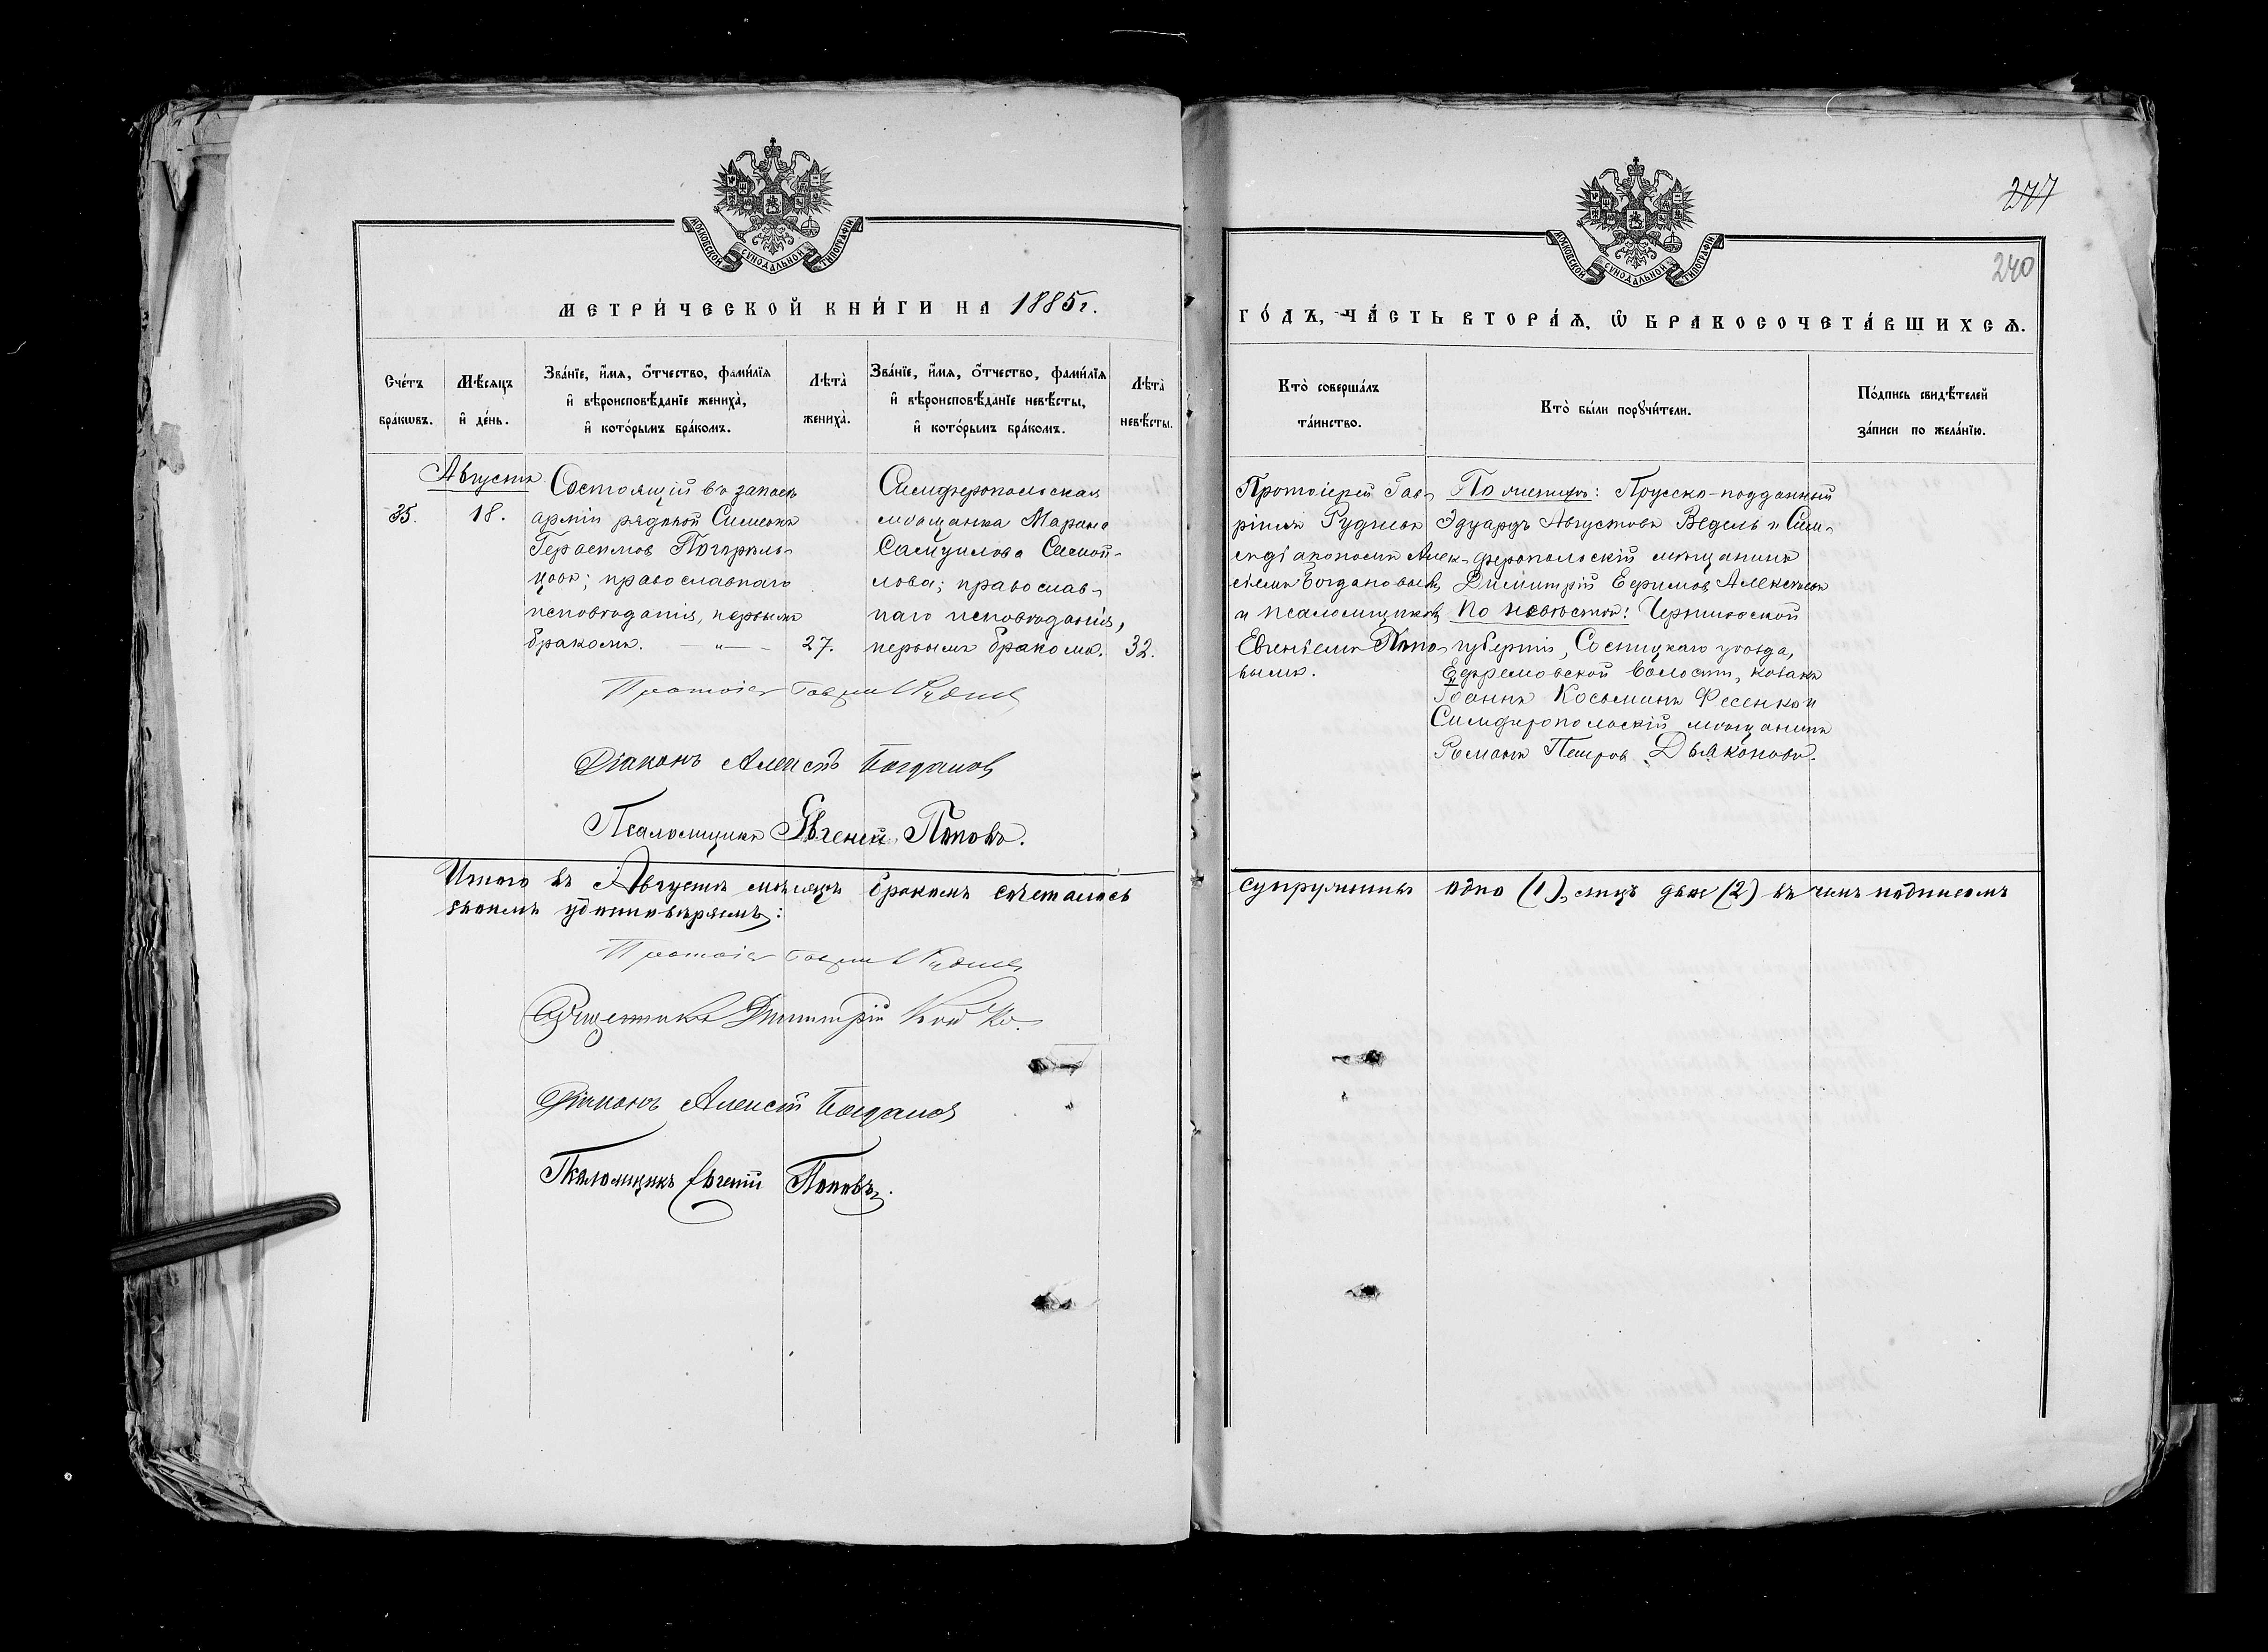 МОСКОВСКОЙ СѴНОДАЛЬНОЙ ТИПОГРАФІИ
МЕТРИ́ЧЕСКОЙ КНИ́ГИ НА 1885 г.
Сче́тъ бра́кѡвъ.
Мѣ́сяцъ и҆ де́нь.
Зва́нїе, и҆́мя, ѻ҆́тчество, фами́лїя
и҆ вѣроисповѣ́данїе жениха̀,
и҆ кото́рымъ бра́комъ.
Лѣта̀ жениха̀.
Зва́нїе, и҆́мя, ѻ҆́тчество, фами́лїя
и҆ вѣроисповѣ́данїе невѣ́сты,
и҆ кото́рымъ бра́комъ.
Лѣта̀ невѣ́сты.
Августа
35.
18.
Состоящій въ запасѣ
арміи рядовой Симеонъ
Герасимов
цовъ; православнаго
исповѣданія, первымъ
бракомъ. — „ — 27.
Симферопольская
мѣщанка Марѳа
Самуилова
лова; православ-
наго исповѣданія,
первымъ бракомъ. 32.
Протоіер Гавріил Руднев
Діаконъ Алексѣй Богданов
Псаломщикъ Евгеній Поповъ.
Итого въ Августѣ мѣсяцѣ бракомъ сочеталось
своимъ удостовѣряемъ:
Протоіер Гавріил Руднев
Священникъ Димитрій
Діаконъ Алексій Богданов
Псаломщикъ Евгеній Поповъ.
277
240
МОСКОВСКОЙ СѴНОДАЛЬНОЙ ТИПОГРАФІИ
ГО́ДЪ, ЧА́СТЬ ВТОРА́Я, Ѡ҆ БРАКОСОЧЕТА́ВШИХСЯ.
Кто̀ соверша́лъ
та́инство.
Кто̀ бы́ли порꙋчи́тели.
По́дпись свидѣ́телей
за́писи по жела́нїю.
Протоіерей Гав-
ріилъ Рудневъ
съ діакономъ Алек-
сѣемъ Богдановымъ
и псаломщикомъ
Евгеніемъ Попо-
вымъ.
По женихѣ: Прусско-подданный
Эдуардъ Августовъ Ведель и Сим-
феропольскій мѣщанинъ
Димитрій Ефимов Алексѣевъ
по невѣстѣ: Черниговской
губерніи, Сосницкаго уѣзда,
волости, козакъ
Іоаннъ Косьминъ Фесенко и
Симферопольскій мѣщанинъ
Романъ Петров Дьяконовъ.
супружество одно (1), лицъ двое (2) въ чемъ подписомъ